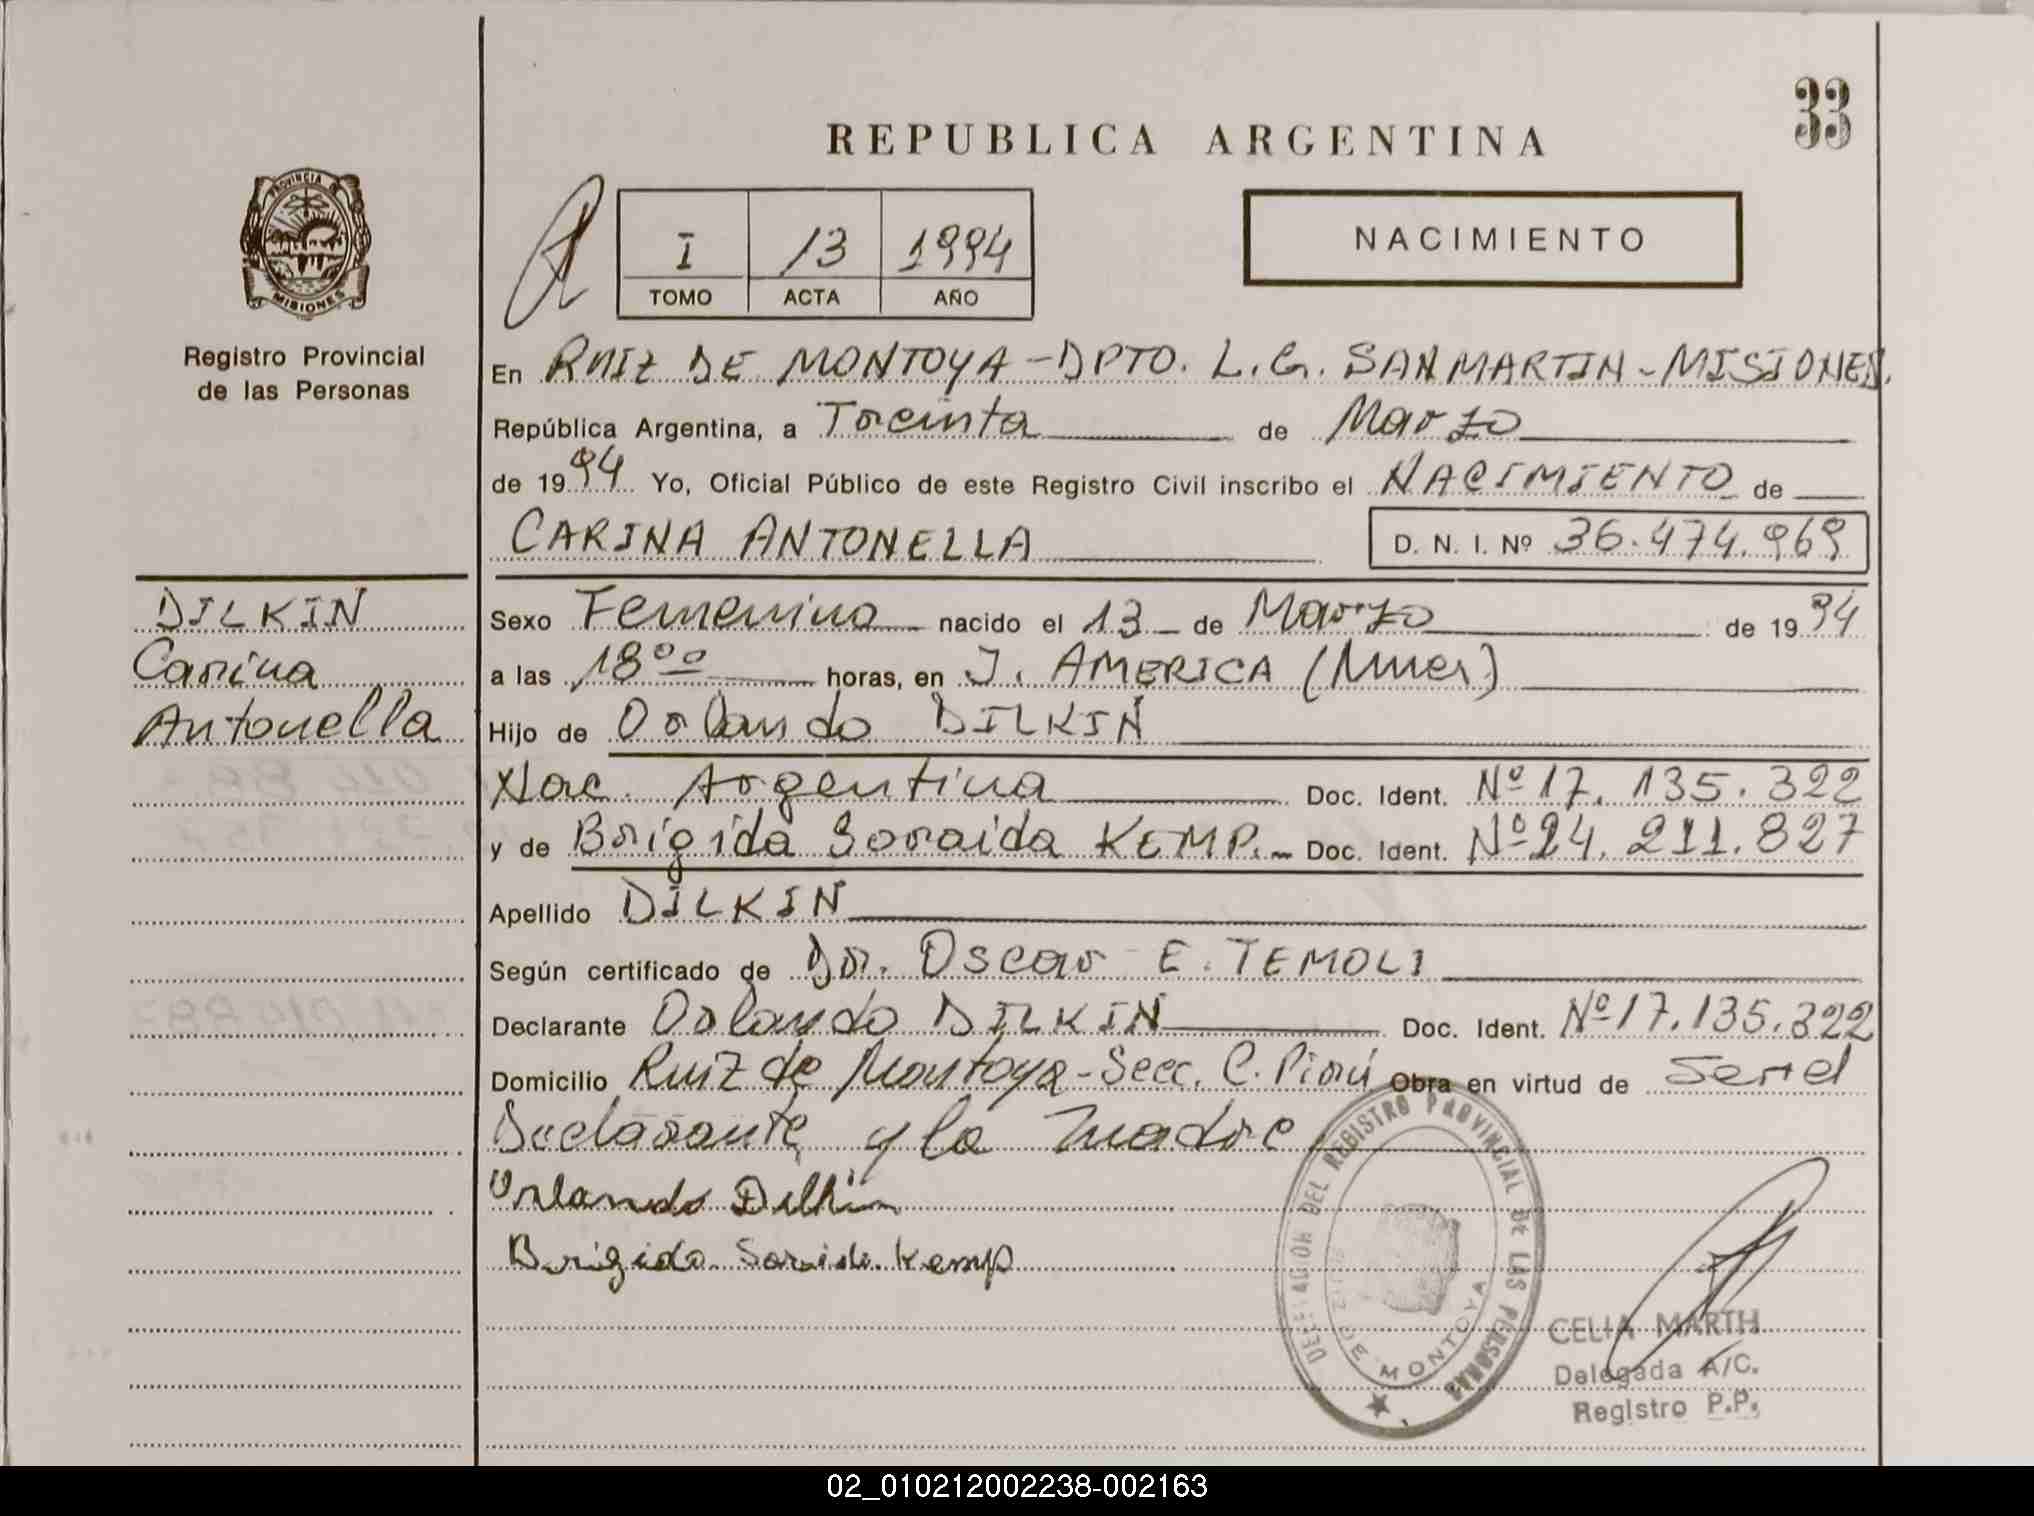 33
REPUBLICA ARGENTINA
PROVINCIA DE
MISIONES
Registro Provincial
de las Personas
I 13 1994
TOMO ACTA AÑO
NACIMIENTO
En RUIZ DE MONTOYA - DPTO. L.G. SAN MARTIN - MISIONES.
República Argentina, a Treinta de Marzo
de 1994 Yo, Oficial Público de este Registro Civil inscribo el NACIMIENTO de
CARINA ANTONELLA D. N. I. Nº 36.474.969
DILKIN
Carina
Antonella
Sexo Femenino nacido el 13 de Marzo de 1994
a las 18°° horas, en J. AMERICA
Hijo de Orlando DILKIN
Nac. Argentina Doc. Ident. Nº 17.135.322
y de Brigida Soraida KEMP.- Doc. Ident. Nº 24.211.827
Apellido DILKIN
Según certificado de Dr. Oscar E. TEMOLI
Declarante Orlando DILKIN Doc. Ident. Nº 17.135.322
Domicilio Ruiz de Montoya - Secc. C. Pirú Obra en virtud de ser el
Declarante y la madre
Orlando Dilkin
Brigida Soraida Kemp
DELEGACION DEL REGISTRO PROVINCIAL DE LAS PERSONAS
RUIZ DE MONTOYA
CELIA MARTH
Delegada A/C.
Registro P.P.
02_010212002238-002163